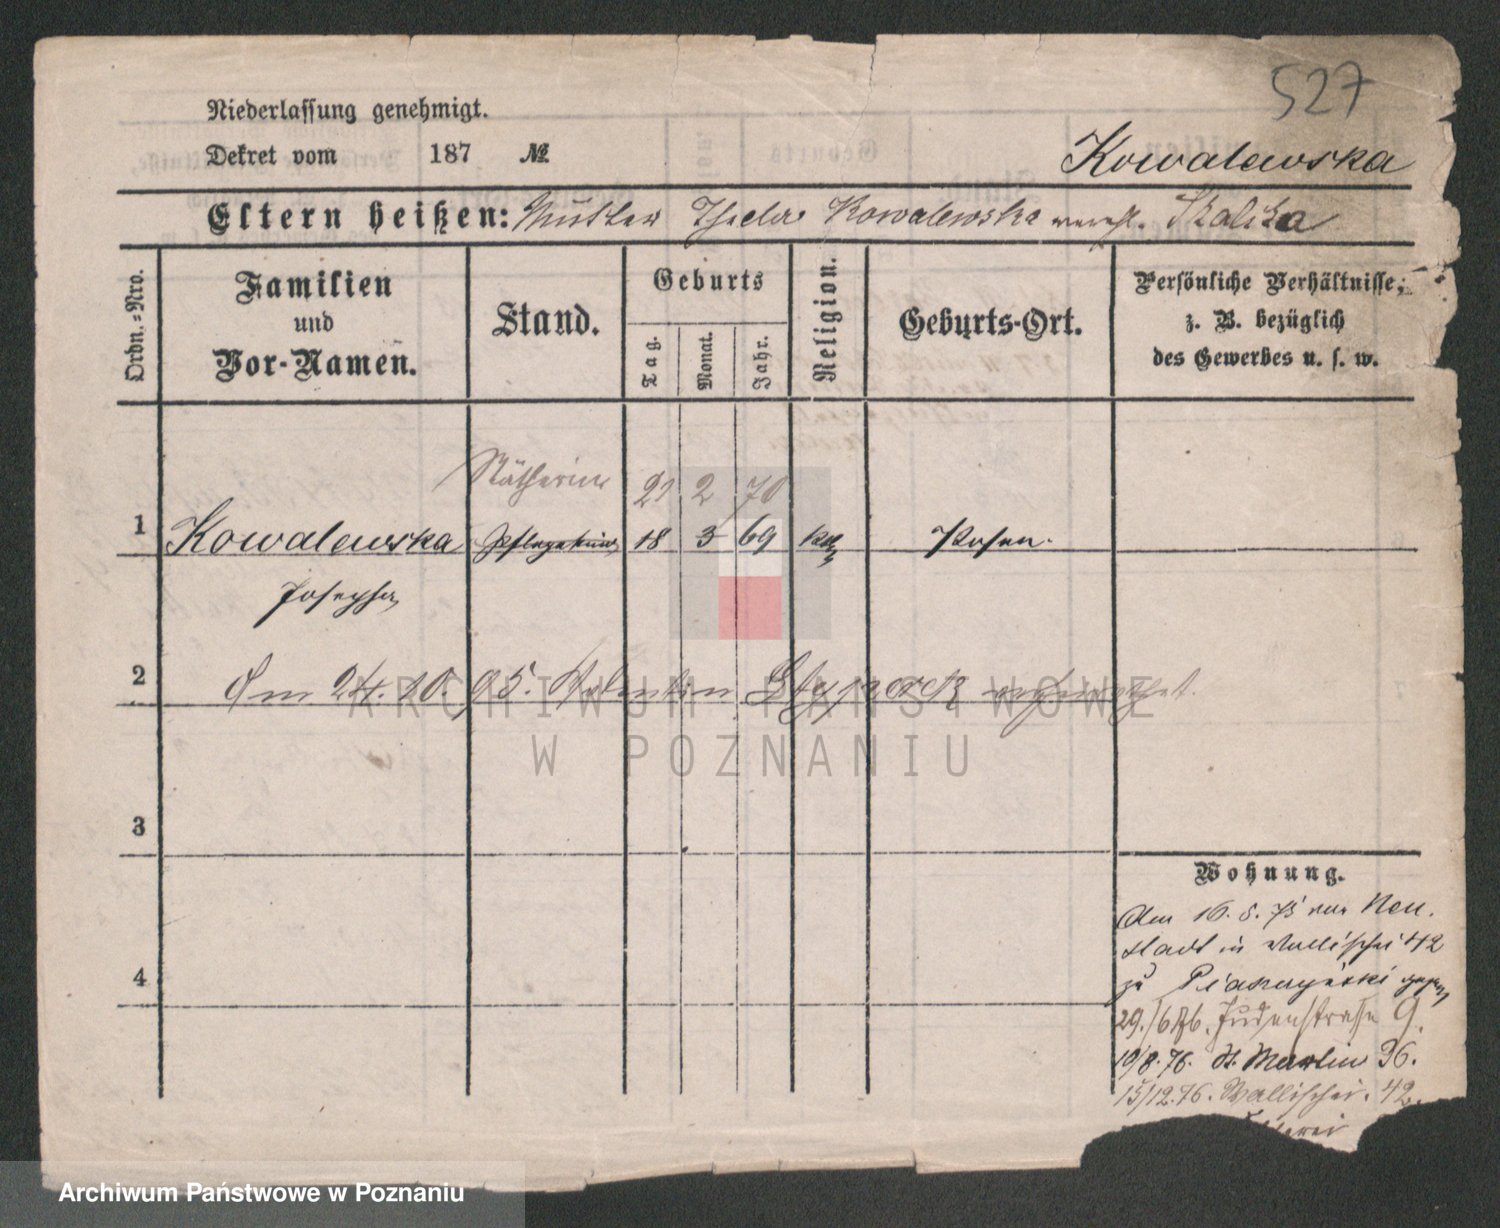 527
Niederlassung genehmigt.
Dekret vom 187 №
Kowalewska
Eltern heißen: Mutter Thecla Kowalewska verehl. Skalska
Ordn.-Nro.
Familien und Vor-Namen.
Stand.
Geburts
Tag. Monat. Jahr.
Religion.
Geburts-Ort.
Persönliche Verhältnisse, z. B. bezüglich des Gewerbes u. s. w.
Nätherin 21 2 70
1 Kowalewska Pflegekind 18 3 69 kth Posen.
Josepha
2 Am 24. 10. 95. Valentin
3
4
Wohnung.
Am 16. 5. 75 von Neu.
stadt in Wallischei 42
zu gezogen
29./6 76. Judenstraße 9.
10/8.76. St. Martin 36.
15/12.76. Wallischei. 42.
ARCHIWUM PAŃSTWOWE
W POZNANIU
Archiwum Państwowe w Poznaniu